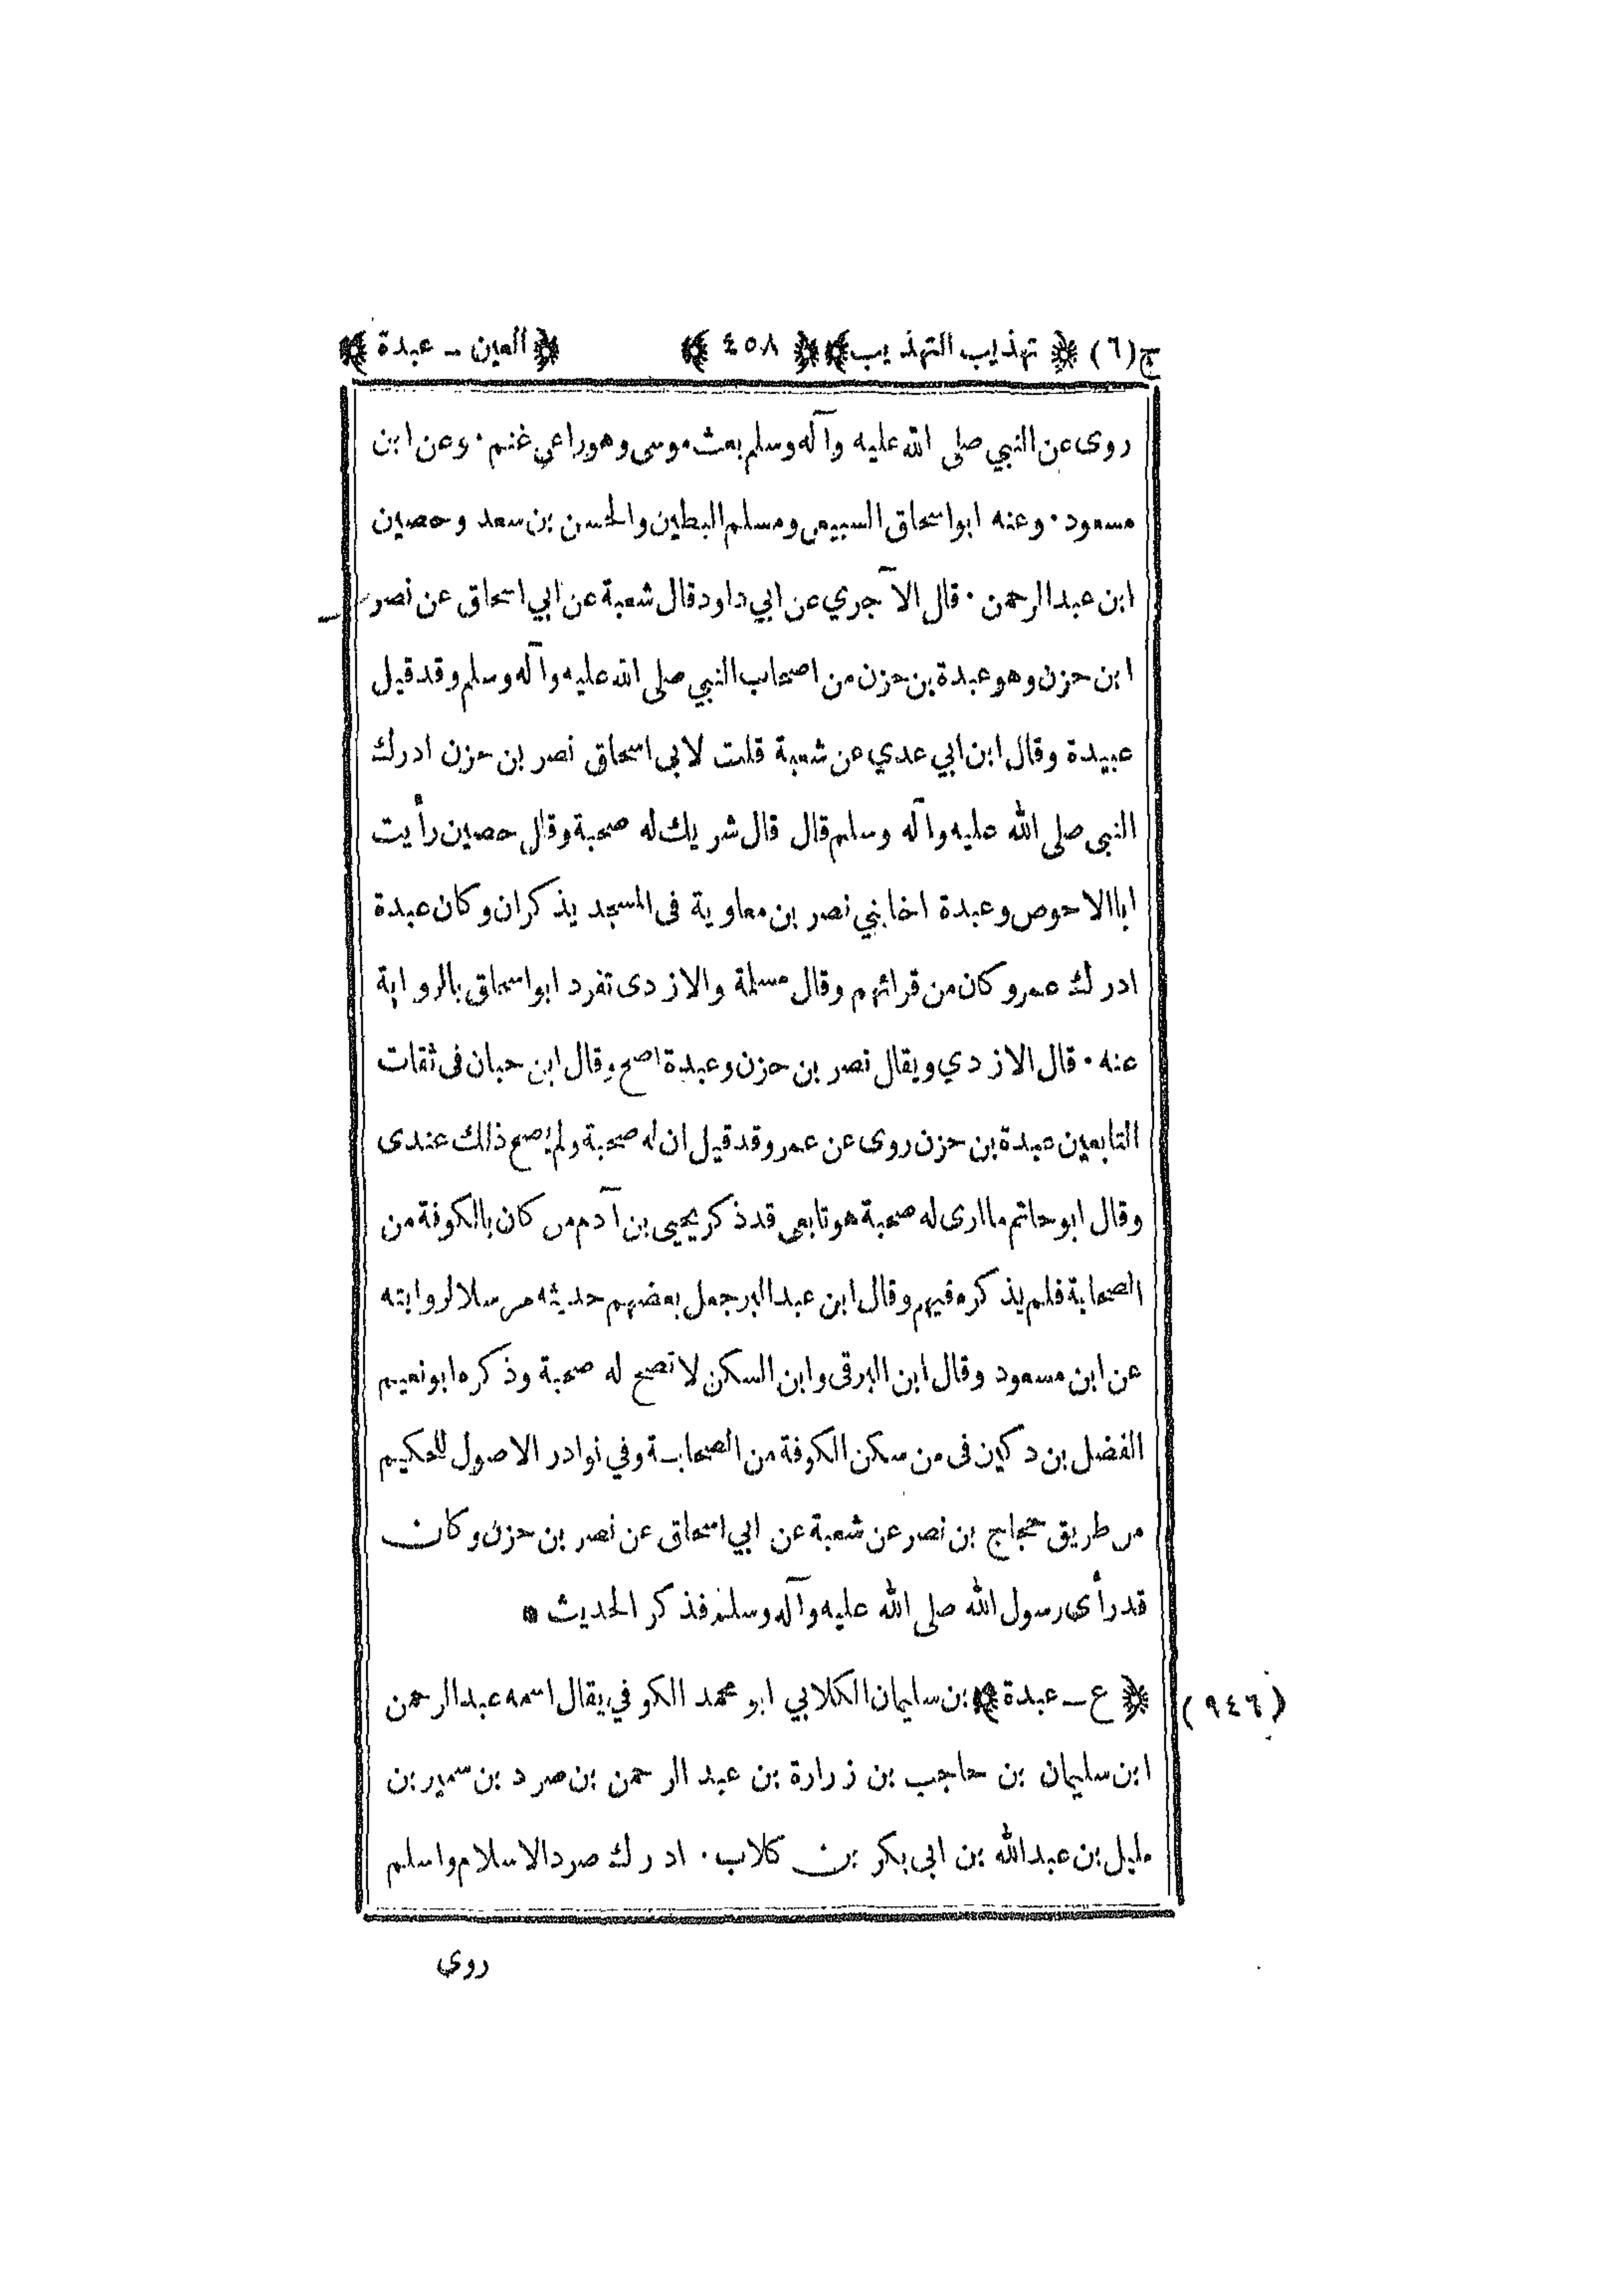 ج(٦) ﴿ تهذيب التهذيب ﴾ ﴿ ٤٥٨ ﴾ ﴿ العين – عبدة ﴾
روى عن النبي صلى الله عليه وآله وسلم بعث موسى وهو راعى غنم · وعن ابن
مسعود · وعنه ابو اسحاق السبيعي ومسلم البطين والحسن بن سعد وحصين
ابن عبد الرحمن · قال الآجري عن ابي داود قال شعبة عن ابي اسحاق عن نصر
ابن حزن وهو عبدة بن حزن من اصحاب النبي صلى الله عليه وآله وسلم وقد قيل
عبيدة وقال ابن ابي عدي عن شعبة قلت لابى اسحاق نصر بن حزن ادرك
النبى صلى الله عليه وآله وسلم قال قال شريك له صحبة وقال حصين رأيت
ابا الاحوص وعبدة اخا بني نصر بن معاوية فى المسجد يذكران وكان عبدة
ادرك عمر وكان من قرائهم وقال مسلمة والازدى تفرد ابو اسحاق بالرواية
عنه · قال الازدي ويقال نصر بن حزن وعبدة اصح وقال ابن حبان فى ثقات
التابعين عبدة بن حزن روى عن عمر وقد قيل ان له صحبة ولم يصح ذلك عندى
وقال ابو حاتم ما ارى له صحبة هو تابعى قد ذكر يحيى بن آدم من كان بالكوفة من
الصحابة فلم يذكره فيهم وقال ابن عبد البر جعل بعضهم حديثه مرسلا لروايته
عن ابن مسعود وقال ابن البرقى وابن السكن لا تصح له صحبة وذكره ابو نعيم
الفضل بن دكين فى من سكن الكوفة من الصحابة وفي نوادر الاصول للحكيم
من طريق حجاج بن نصر عن شعبة عن ابي اسحاق عن نصر بن حزن وكان
قد رأى رسول الله صلى الله عليه وآله وسلم فذكر الحديث *
(٩٤٦) ﴿ ع – عبدة ﴾ بن سليمان الكلابي ابو محمد الكوفي يقال اسمه عبد الرحمن
ابن سليمان بن حاجب بن زرارة بن عبد الرحمن بن صرد بن سمير بن
مليل بن عبد الله بن ابى بكر بن كلاب · ادرك صرد الاسلام واسلم
روى